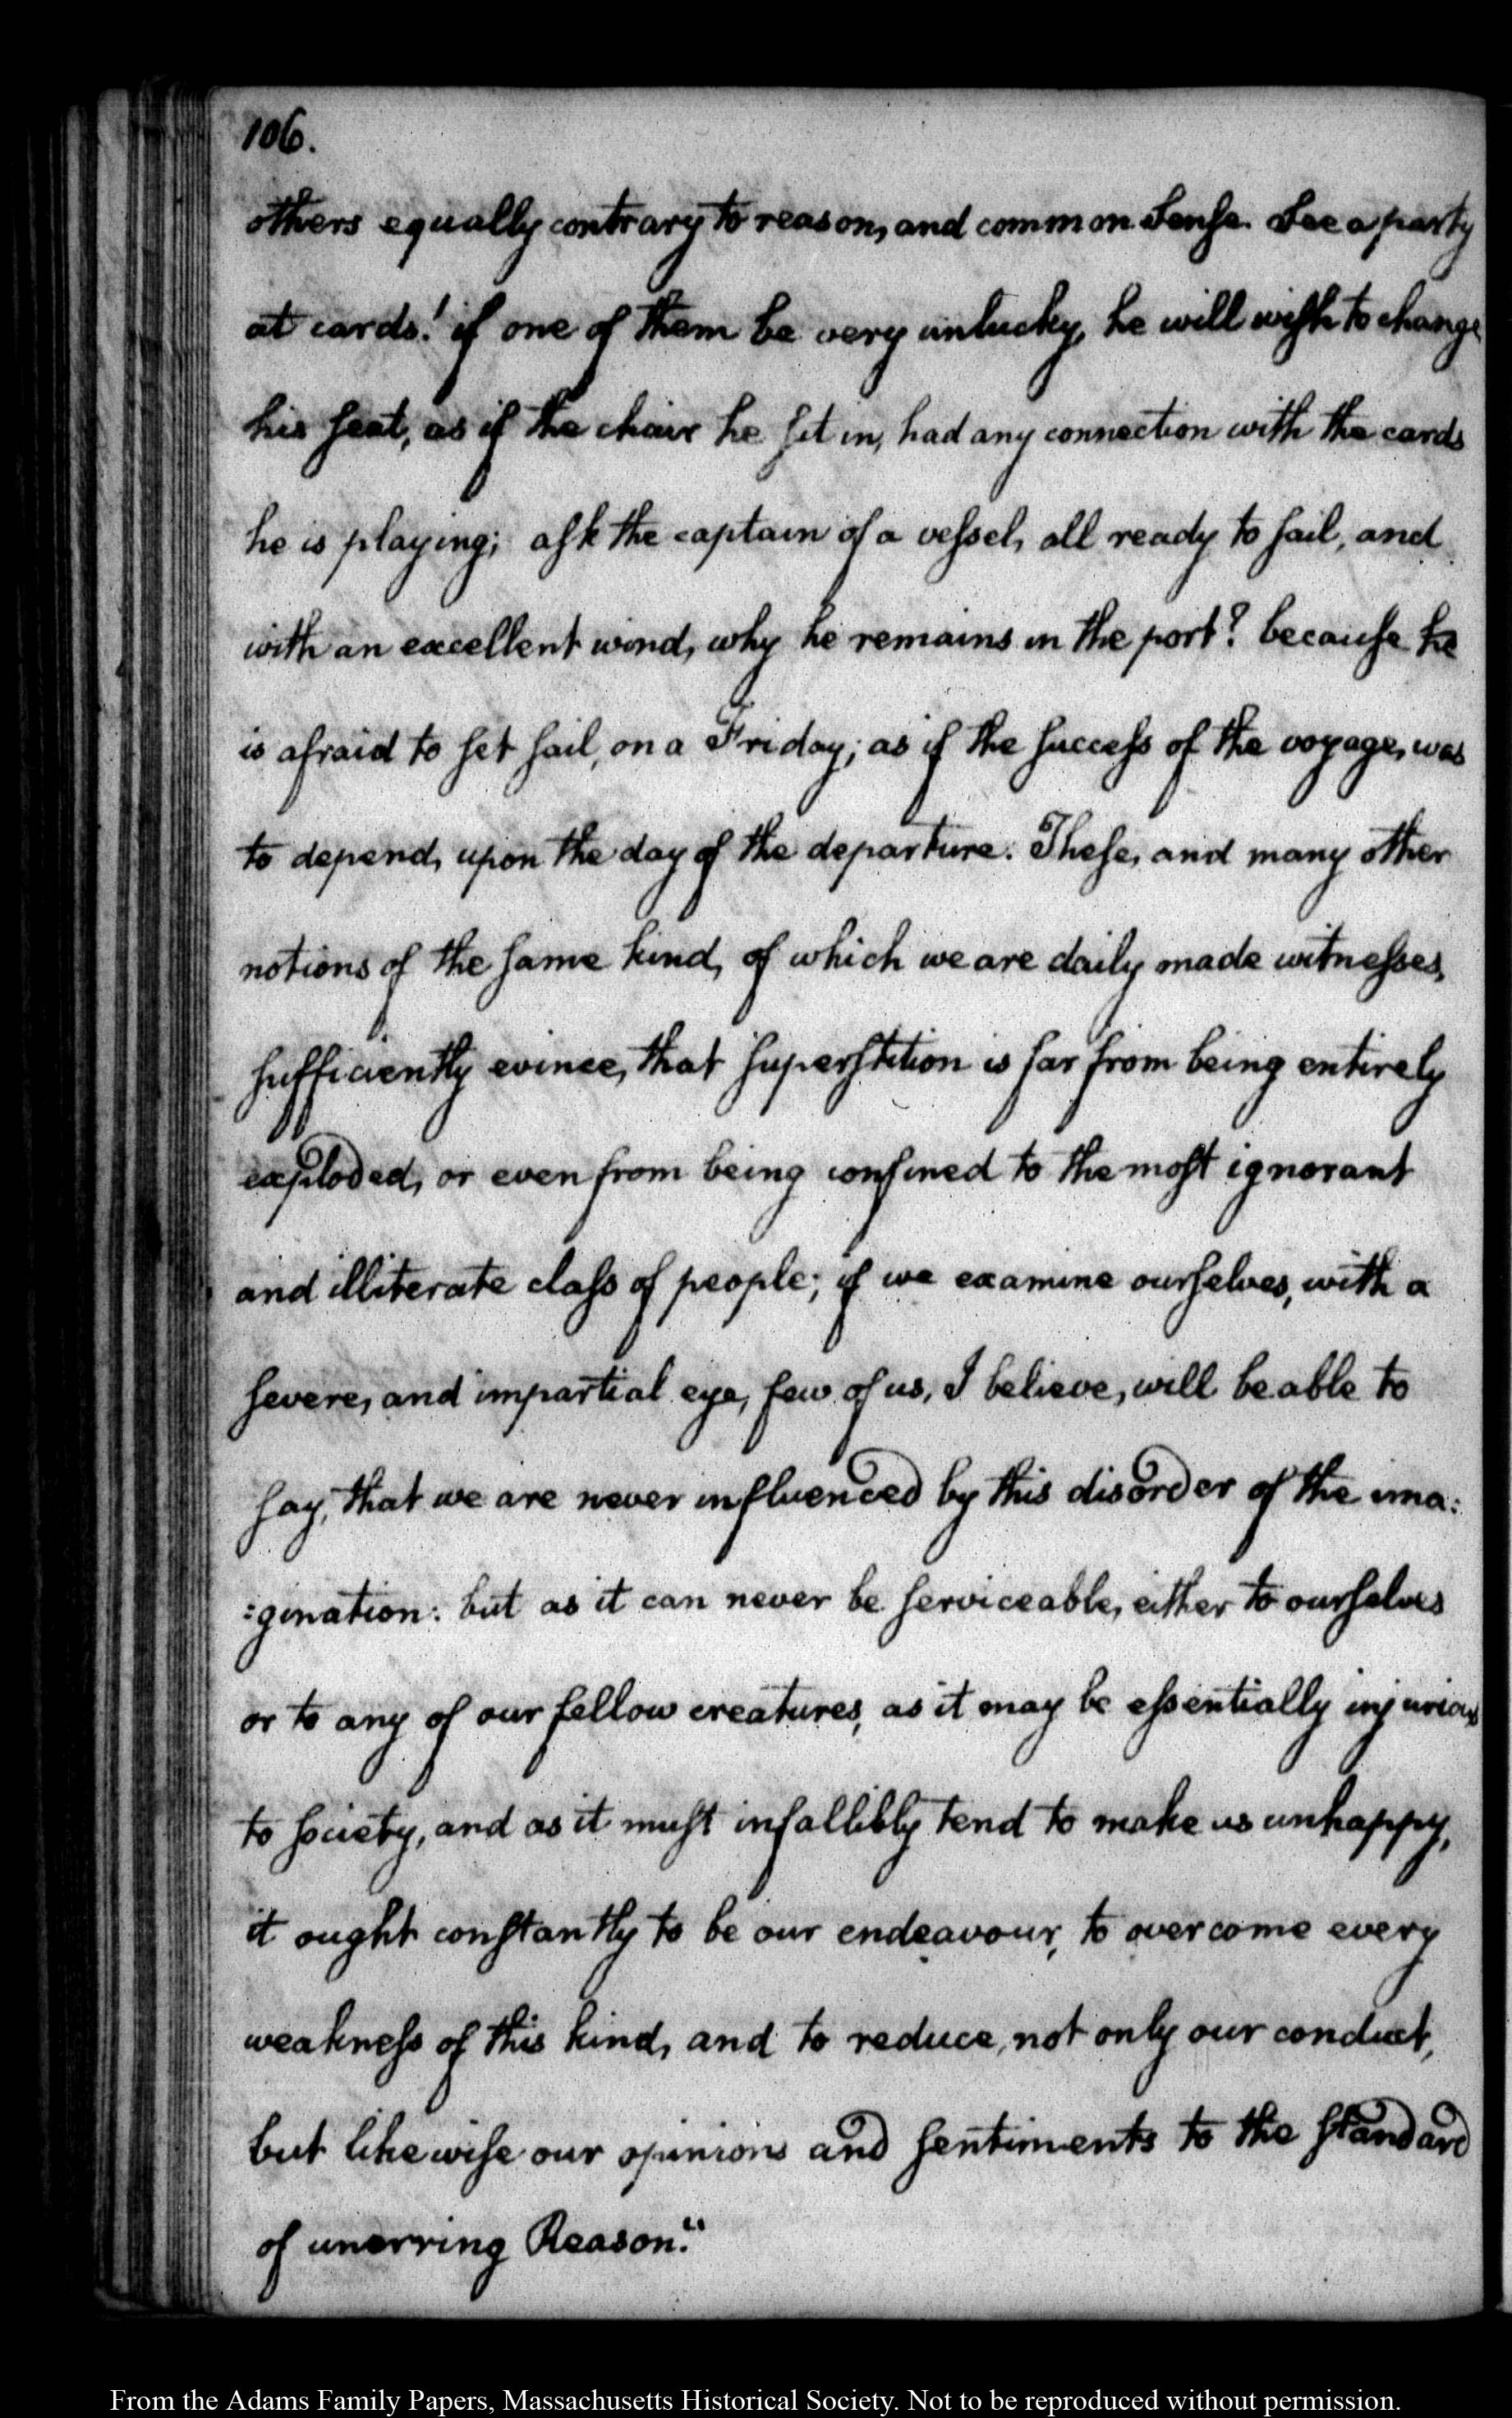 106.
others equally contrary to reason, and common Sense. See a party
at cards! if one of them be very unlucky, he will wish to change
his seat, as if the chair he sit in, had any connection with the cards
he is playing; ask the captain of a vessel, all ready to sail, and
with an excellent wind, why he remains in the port? because he
is afraid to set sail, on a Friday; as if the success of the voyage, was
to depend, upon the day of the departure. These, and many other
notions of the same kind, of which we are daily made witnesses,
sufficiently evince, that superstition is far from being entirely
exploded, or even from being confined to the most ignorant
and illiterate class of people; if we examine ourselves, with a
severe, and impartial eye, few of us, I believe, will be able to
say, that we are never influenced by this disorder of the ima:
:gination: but as it can never be serviceable, either to ourselves
or to any of our fellow creatures, as it may be essentially injurious
to society, and as it must infallibly tend to make us unhappy,
it ought constantly to be our endeavour, to overcome every
weakness of this kind, and to reduce, not only our conduct,
but likewise our opinions and sentiments to the standard
of unerring Reason."
From the Adams Family Papers, Massachusetts Historical Society. Not to be reproduced without permission.